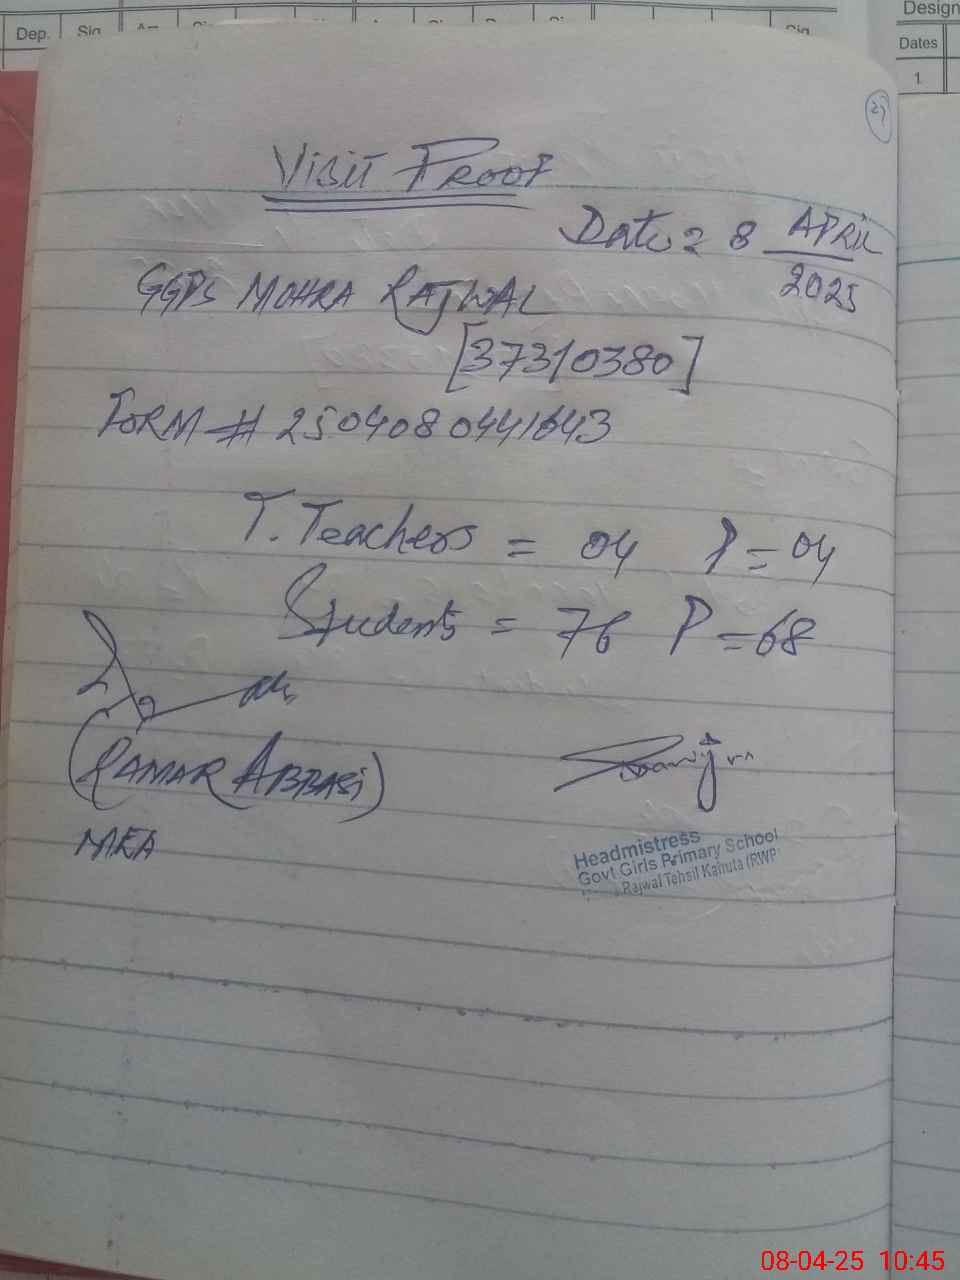 Design
Dep. Sig
Dates
1
27
Visit Proof
Date = 8 APRIL
2025
GGPS MOHRA RAJWAL
[37310380]
FORM # 2504080441643
T. Teachers = 04 P = 04
Students = 76 P = 68
(QAMAR ABBASi)
MEA
Headmistress
Govt Girls Primary School
Rajwal Tehsil (RWP
08-04-25 10:45